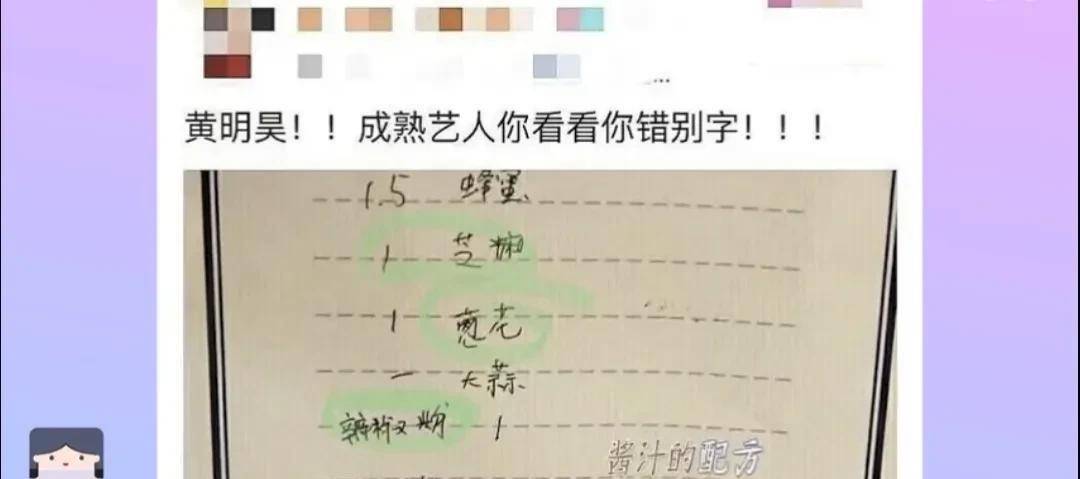 黄明昊！！成熟艺人你看看你错别字！！！
1.5 蜂蜜
1 芝
1
一 大蒜
1
酱汁的配方